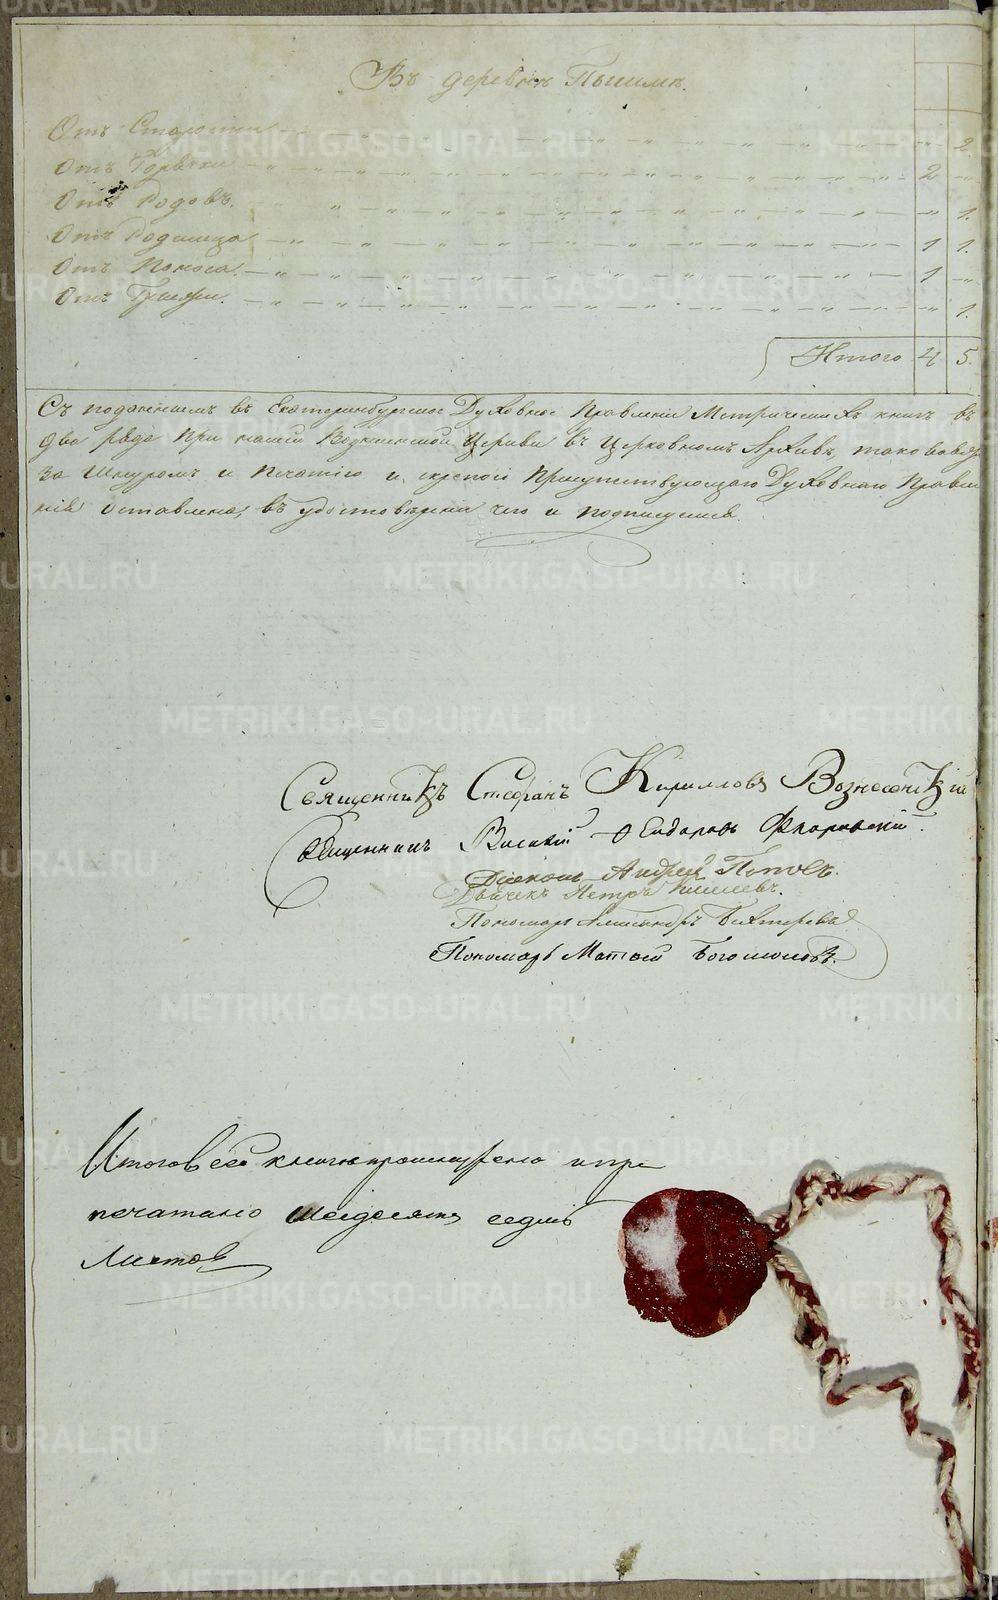 Въ деревнѣ Пышмѣ.
Отъ Старости 2.
Отъ Горячки 2
Отъ Родовъ. 1.
Отъ Родимца 1 1.
Отъ Поноса 1
Отъ 1.
Итого 4 5.
Съ подлиннымъ въ Екатеринбургское Духовное Правленіе Метрическихъ книгъ въ
два ряда при нашей Вознесенской Церкви въ Церковномъ Архивѣ, таковая
за Шнуромъ и Печатью и скрепою Присутствующаго Духовнаго Правле
нія оставлена, въ удостовѣреніи чего и подписуемся.
Священникъ Стефанъ Кирилловъ Вознесенскій
Священникъ Василій Ѳеодоровъ Флоровскій.
Діаконъ Андрей Поповъ.
Дьячекъ Петръ Киселевъ.
Пономарь Александръ
Пономарь Матвей Богомоловъ.
Итого въ сей книге прошнурено и пре
печатано шесдесятъ седмь
Листов
METRIKI.GASO-URAL.RU